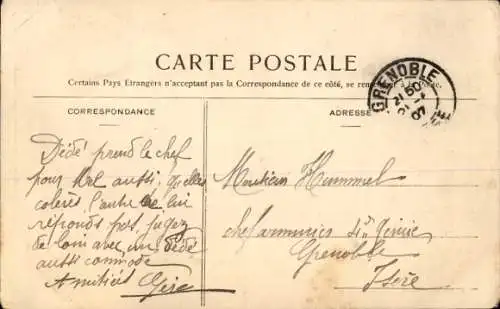 CARTE POSTALE
Certains Pays Étrangers n'acceptant pas la Correspondance de ce côté, se ren
CORRESPONDANCE
ADRESSE
GRENOBLE
21 50
07
Dédé prend le chef
pour aussi, quelles
colères l'autre lui
réponds pas, jugez
de loin avec un dédé
aussi commode
Amitiés
Monsieur Hummel
chef armurier Génie
Grenoble
Isère